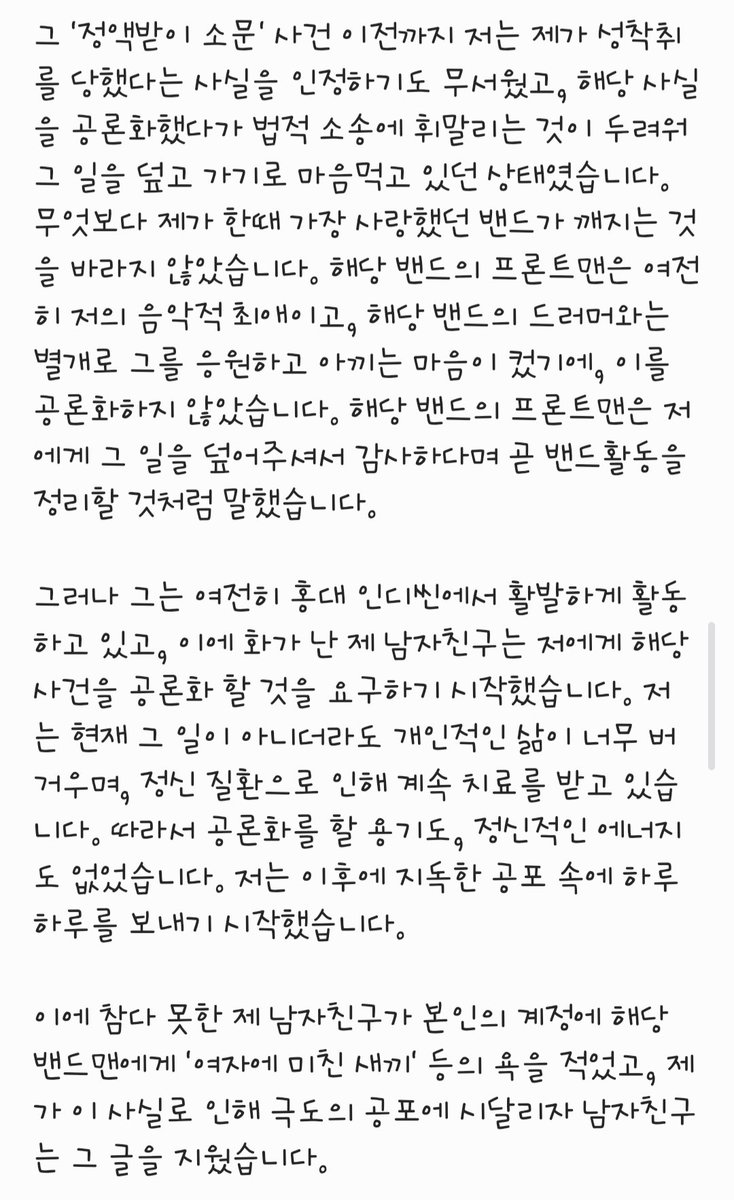 그 '정액받이 소문' 사건 이전까지 저는 제가 성착취
를 당했다는 사실을 인정하기도 무서웠고, 해당 사실
을 공론화했다가 법적 소송에 휘말리는 것이 두려워
그 일을 덮고 가기로 마음먹고 있던 상태였습니다.
무엇보다 제가 한때 가장 사랑했던 밴드가 깨지는 것
을 바라지 않았습니다. 해당 밴드의 프론트맨은 여전
히 저의 음악적 최애이고, 해당 밴드의 드러머와는
별개로 그를 응원하고 아끼는 마음이 컸기에, 이를
공론화하지 않았습니다. 해당 밴드의 프론트맨은 저
에게 그 일을 덮어주셔서 감사하다며 곧 밴드활동을
정리할 것처럼 말했습니다.
그러나 그는 여전히 홍대 인디씬에서 활발하게 활동
하고 있고, 이에 화가 난 제 남자친구는 저에게 해당
사건을 공론화 할 것을 요구하기 시작했습니다. 저
는 현재 그 일이 아니더라도 개인적인 삶이 너무 버
거우며, 정신 질환으로 인해 계속 치료를 받고 있습
니다. 따라서 공론화를 할 용기도, 정신적인 에너지
도 없었습니다. 저는 이후에 지독한 공포 속에 하루
하루를 보내기 시작했습니다.
이에 참다 못한 제 남자친구가 본인의 계정에 해당
밴드맨에게 '여자에 미친 새끼' 등의 욕을 적었고, 제
가 이 사실로 인해 극도의 공포에 시달리자 남자친구
는 그 글을 지웠습니다.